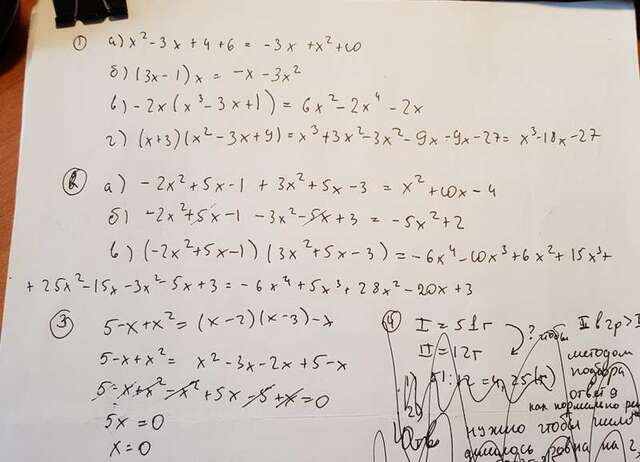 ① а) x² - 3x + 4 + 6 = -3x + x² + 10
б) (3x - 1) x = -x - 3x²
в) -2x (x³ - 3x + 1) = 6x² - 2x⁴ - 2x
г) (x + 3) (x² - 3x + 9) = x³ + 3x² - 3x² - 9x - 9x - 27 = x³ - 18x - 27
② а) -2x² + 5x - 1 + 3x² + 5x - 3 = x² + 10x - 4
б) -2x² + 5x - 1 - 3x² - 5x + 3 = -5x² + 2
в) (-2x² + 5x - 1) (3x² + 5x - 3) = -6x⁴ - 10x³ + 6x² + 15x³ +
+ 25x² - 15x - 3x² - 5x + 3 = -6x⁴ + 5x³ + 28x² - 20x + 3
③ 5 - x + x² = (x - 2) (x - 3) - x
5 - x + x² = x² - 3x - 2x + 5 - x
5 - x + x² - x² + 5x - 5 + x = 0
5x = 0
x = 0
④ I = 51г
II = 12г
? чтобы II в 2р > I
методом
подбора
1) 51 : 12 = 4,25 (г)
2)
ответ 9
как нормально
Отве
нужно чтобы число
ровна на 2